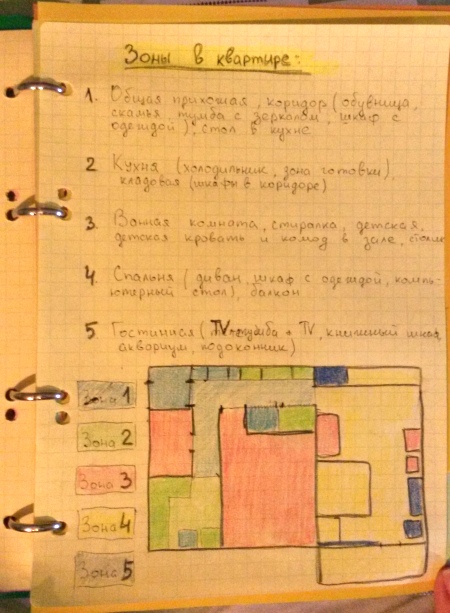 Зоны в квартире:
1. Общая прихожая, коридор (обувница,
скамья, тумба с зеркалом, шкаф с
одеждой), стол в кухне
2 Кухня (холодильник, зона готовки),
кладовая (шкафы в коридоре)
3. Ванная комната, стиралка, детская,
детская кровать и комод в зале,
4 Спальня (диван, шкаф с одеждой, компь-
ютерный стол), балкон
5 Гостинная (TV-тумба + TV, книжный шкаф,
аквариум, подоконник)
Зона 1
Зона 2
Зона 3
Зона 4
Зона 5